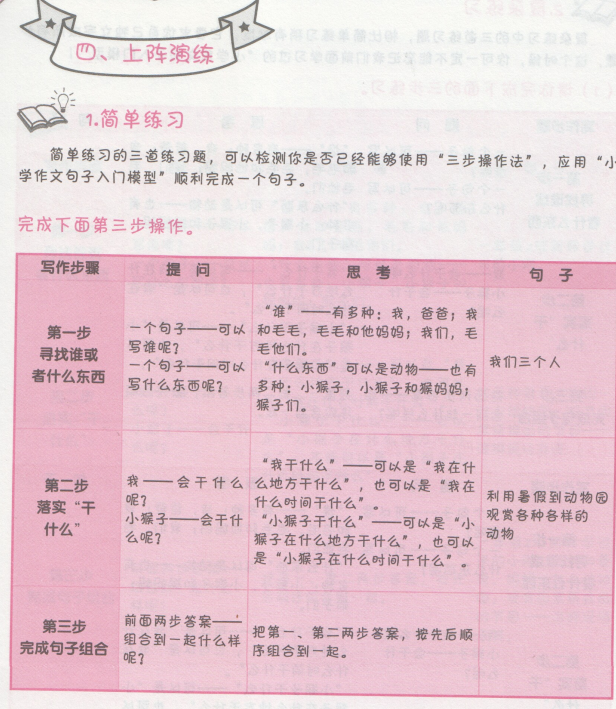 四、上阵演练
1.简单练习
简单练习的三道练习题，可以检测你是否已经能够使用“三步操作法”，应用“小
学作文句子入门模型”顺利完成一个句子。
完成下面第三步操作。
写作步骤 提 问 思 考 句 子
第一步
寻找谁或
者什么东西
一个句子——可以
写谁呢？
一个句子——可以
写什么东西呢？
“谁”——有多种：我，爸爸；我
和毛毛，毛毛和他妈妈；我们，毛
毛他们。
“什么东西”可以是动物——也有
多种：小猴子，小猴子和猴妈妈；
猴子们。
我们三个人
第二步
落实“干
什么”
我——会干什么
呢？
小猴子——会干什
么呢？
“我干什么”——可以是“我在什
么地方干什么”，也可以是“我在
什么时间干什么”。
“小猴子干什么”——可以是“小
猴子在什么地方干什么”，也可以
是“小猴子在什么时间干什么”。
利用暑假到动物园
观赏各种各样的
动物
第三步
完成句子组合
前面两步答案——
组合到一起什么样
呢？
把第一、第二两步答案，按先后顺
序组合到一起。